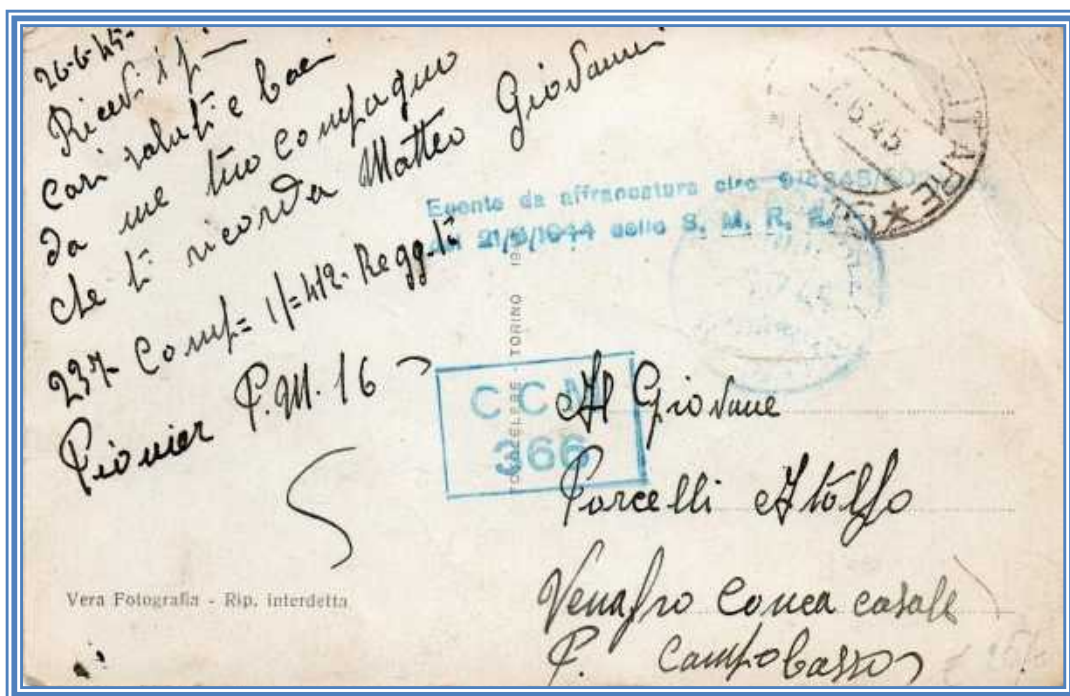 26-6-45-
Ricevi i più
cari saluti e baci
da me tuo compagno
che ti ricorda Matteo Giovanni
237- Comp= 1/=412- Regg.ti
Pionier P.M. 16
Esente da affrancatura circ
21/8/1944 dello S. M. R. E.
6.45
ITARE
C C M
366
TORINO
Al Giovane
Porcelli Atolfo
Venafro Conca casale
P. Campobasso
Vera Fotografia - Rip. interdetta